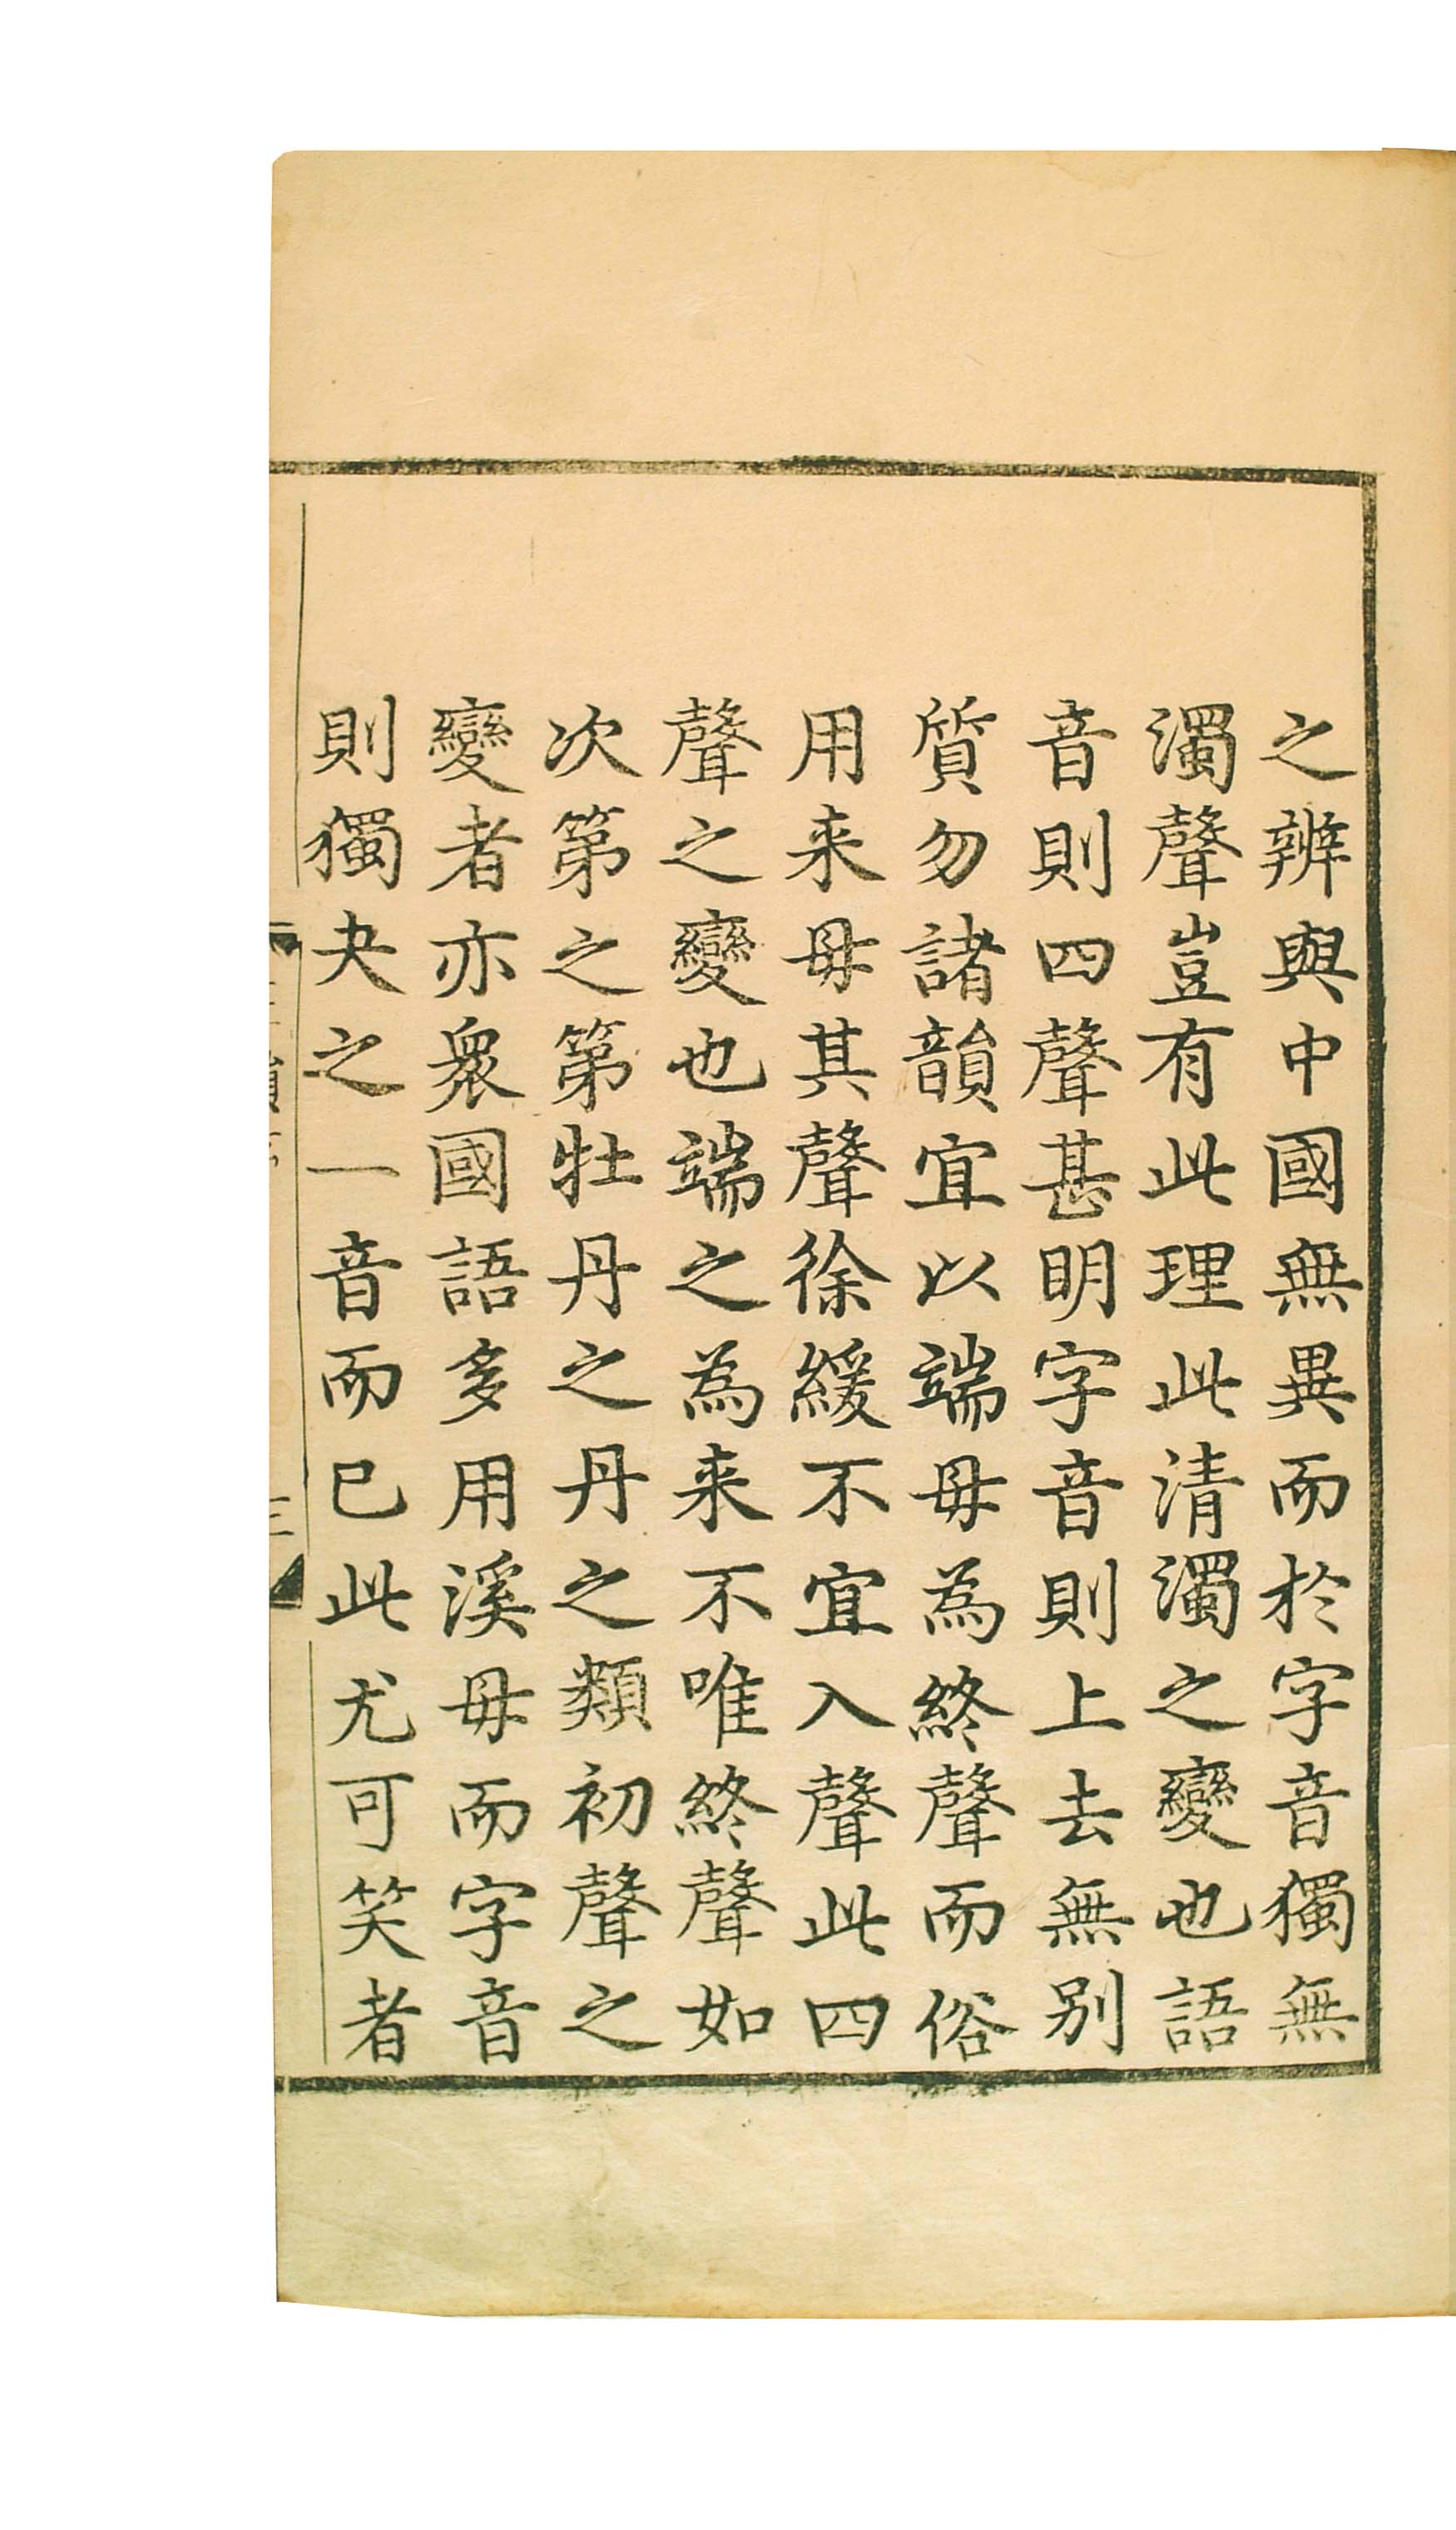 之辨與中國無異而於字音獨無
濁聲豈有此理此清濁之變也語
音則四聲甚明字音則上去無别
質勿諸韻宜以端母為終聲而俗
用来母其聲徐緩不宜入聲此四
聲之變也端之為来不唯終聲如
次第之第牡丹之丹之類初聲之
變者亦衆國語多用溪母而字音
則獨夬之一音而已此尤可笑者